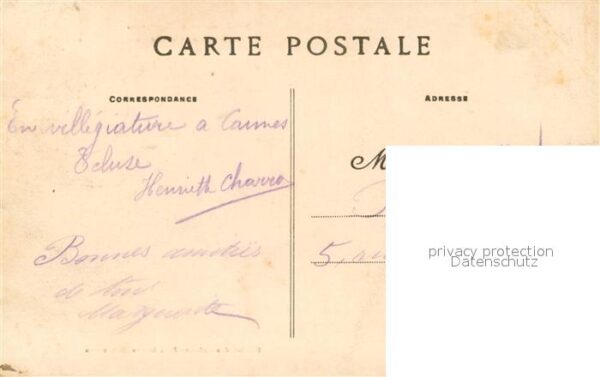 CARTE POSTALE
CORRESPONDANCE
ADRESSE
En villégiature a Cannes
Ecluse
Henrieth Charro
Bonnes amitiés
de tous
Marguerite
M
5
privacy protection
Datenschutz